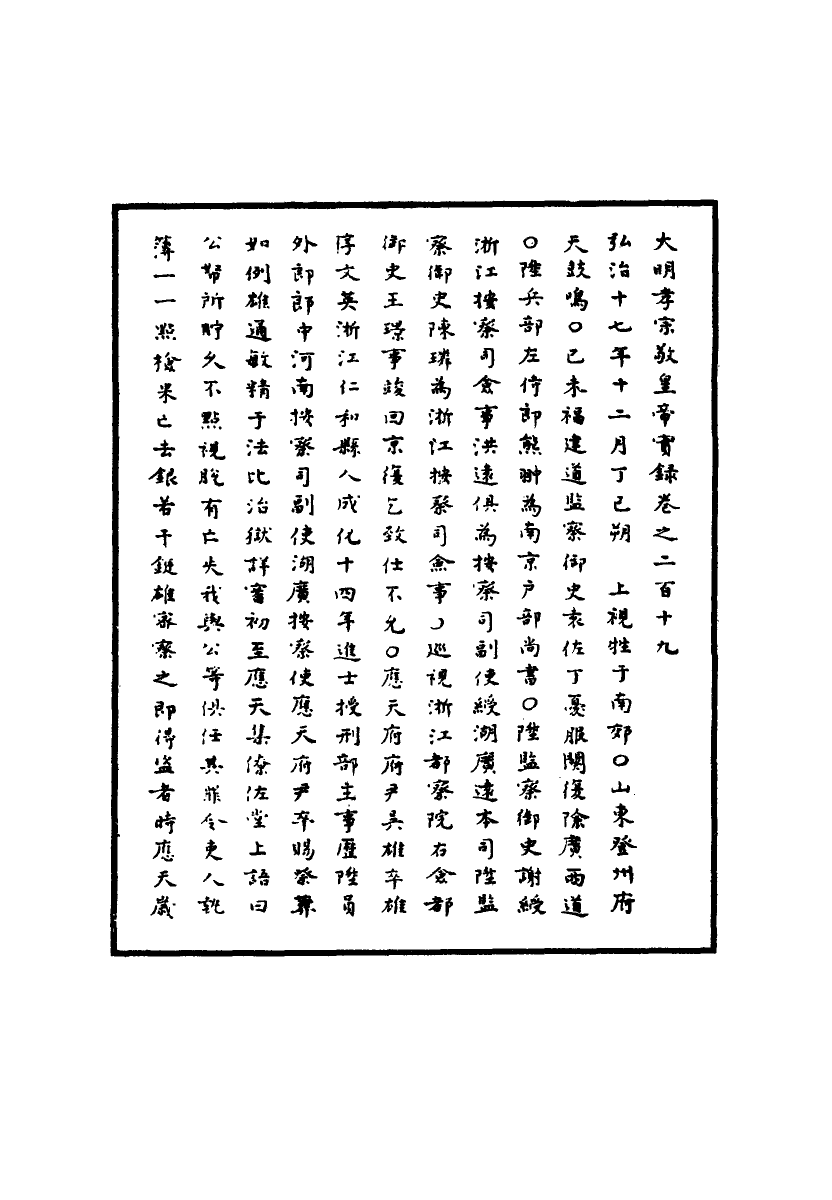 大明孝宗敬皇帝實録卷之二百十九
弘治十七年十二月丁巳朔　上視牲于南郊○山東登州府
天鼓鳴○己未福建道監察御史袁佐丁憂服闋復除廣西道
○陞兵部左侍郎熊翀為南京户部尚書○陞監察御史謝綬
浙江按察司僉事洪遠俱為按察司副使綬湖廣遠本司陞監
察御史陳璘為浙江按察司僉事○巡視浙江都察院右僉都
御史王璟事竣回京復乞致仕不允○應天府府尹吳雄卒雄
字文英浙江仁和縣人成化十四年進士授刑部主事歷陞員
外郎郎中河南按察司副使湖廣按察使應天府尹卒賜祭葬
如例雄通敏精于法比治獄詳審初至應天集僚佐堂上語曰
公帑所貯久不點視脫有亡失我與公等俱任其罪令吏人執
簿一一點檢果亡去銀若干鋌雄密察之即得盜者時應天歲